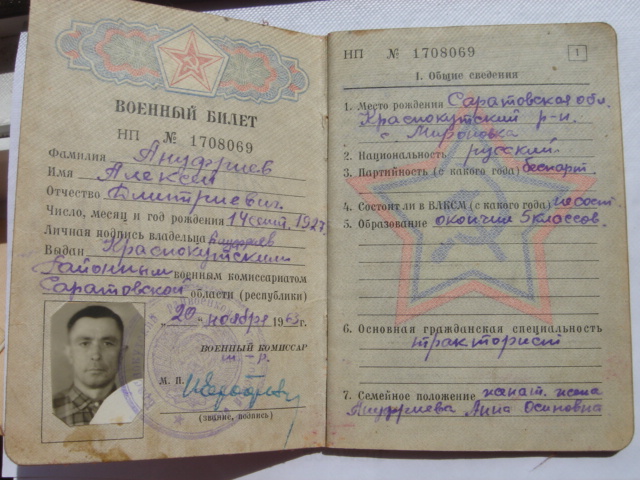 ВОЕННЫЙ БИЛЕТ
НП № 1708069
Фамилия Ануфриев
Имя Алексей
Отчество Дмитриевич
Число, месяц и год рождения 14 сент. 1927г.
Личная подпись владельца Ануфриев
Выдан Краснокутским
районным военным комиссариатом
Саратовской области (республики)
„20" ноября 1963г.
ВОЕННЫЙ КОМИССАР
М. П.
(звание, подпись)
НП № 1708069
1
I. Общие сведения
1. Место рождения Саратовская обл.
Краснокутский р-н.
с. Мироновка
2. Национальность русский
3. Партийность (с какого года) беспарт.
4. Состоит ли в ВЛКСМ (с какого года) не сост
5. Образование окончил 5 классов.
6. Основная гражданская специальность
тракторист
7. Семейное положение женат. жена
Ануфриева Анна Осиповна